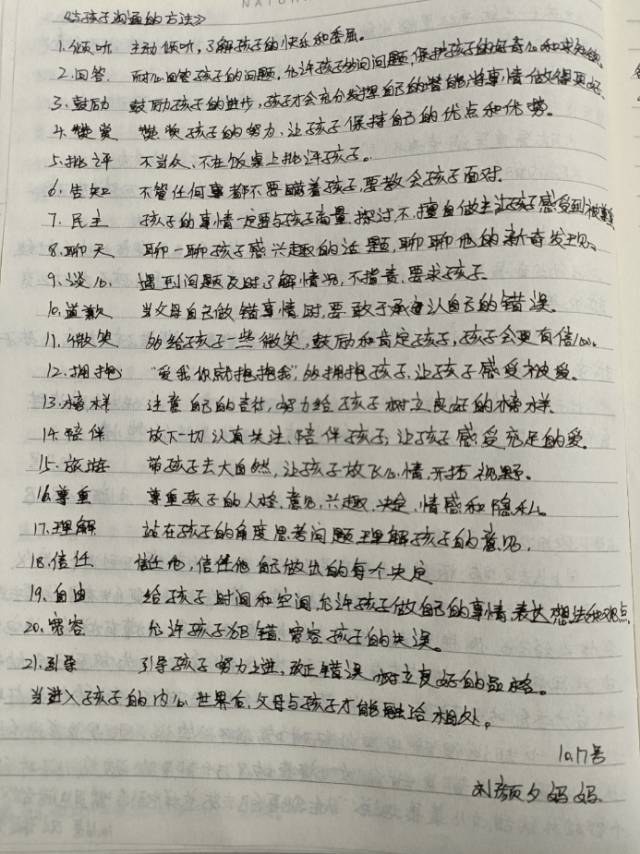 《与孩子沟通的方法》
1.倾听 主动倾听,了解孩子的快乐和委屈。
2.回答 耐心回答孩子的问题,允许孩子的问问题,保护孩子的好奇心和求知欲。
3.鼓励 鼓励孩子的进步,孩子才会充分发挥自己的潜能,将事情做得更好
4.赞赏 赞赏孩子的努力,让孩子保持自己的优点和优势。
5.批评 不当众、不在饭桌上批评孩子。
6.告知 不管任何事都不要瞒着孩子,要教会孩子面对。
7.民主 孩子的事情一定要与孩子商量,探讨,不擅自做主让孩子感受到被尊重
8.聊天 聊一聊孩子感兴趣的话题,聊聊他的新奇发现。
9.谈心 遇到问题及时了解情况,不指责,要求孩子。
10.道歉 当父母自己做错事情时,要敢于承认自己的错误。
11.微笑 多给孩子一些微笑,鼓励和肯定孩子,孩子会更有信心。
12.拥抱 “爱我你就抱抱我”,多拥抱孩子,让孩子感受被爱。
13.榜样 注意自己的言行,努力给孩子树立良好的榜样。
14.陪伴 放下一切认真关注、陪伴孩子,让孩子感受充足的爱。
15.旅游 带孩子去大自然,让孩子放飞心情,开拓视野。
16.尊重 尊重孩子的人格、意见,兴趣、决定、情感和隐私。
17.理解 站在孩子的角度思考问题,理解孩子的意见,
18.信任 信任他,信任他自己做出的每个决定
19.自由 给孩子时间和空间,允许孩子做自己的事情,表达想法和观点,
20.宽容 允许孩子犯错,宽容孩子的失误。
21.引导 引导孩子努力上进,改正错误,树立良好的品格。
当进入孩子的内心世界后,父母与孩子才能融洽相处。
10.17号
刘颜夕妈妈